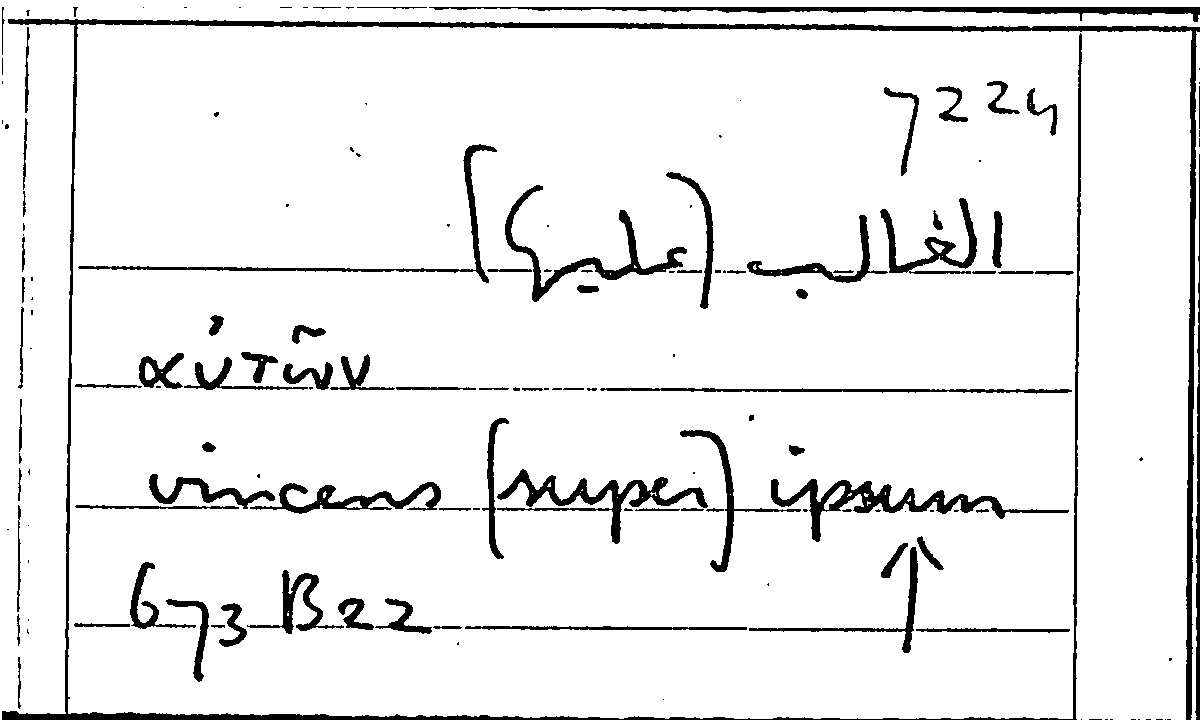 7224
الغالب (عليها)
αὐτῶν
vincens [super] ipsum
673 B22 ↑